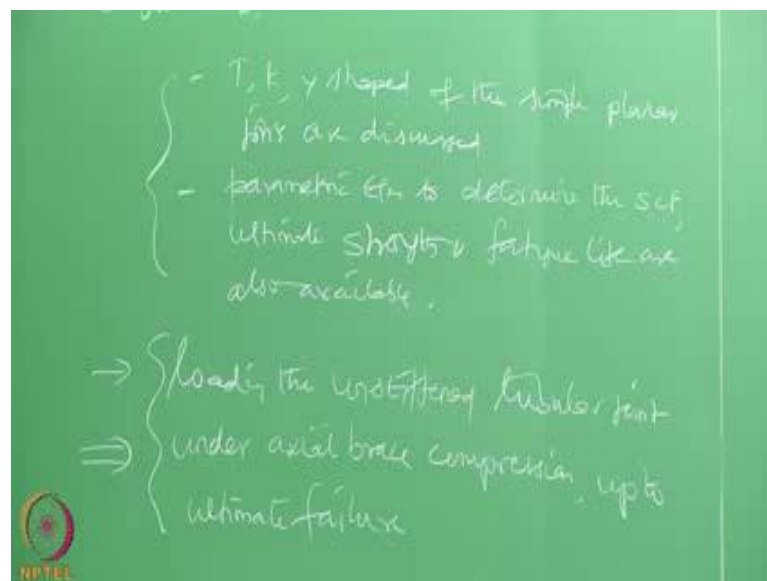 - T, K, Y shaped of the simple planar
joins are discussed
- parametric Eqn to determine the SCF,
ultimate strength & fatigue life are
also available.
→ loading the unstiffened tubular joint
⇒ under axial brace compression, up to
ultimate failure
NPTEL